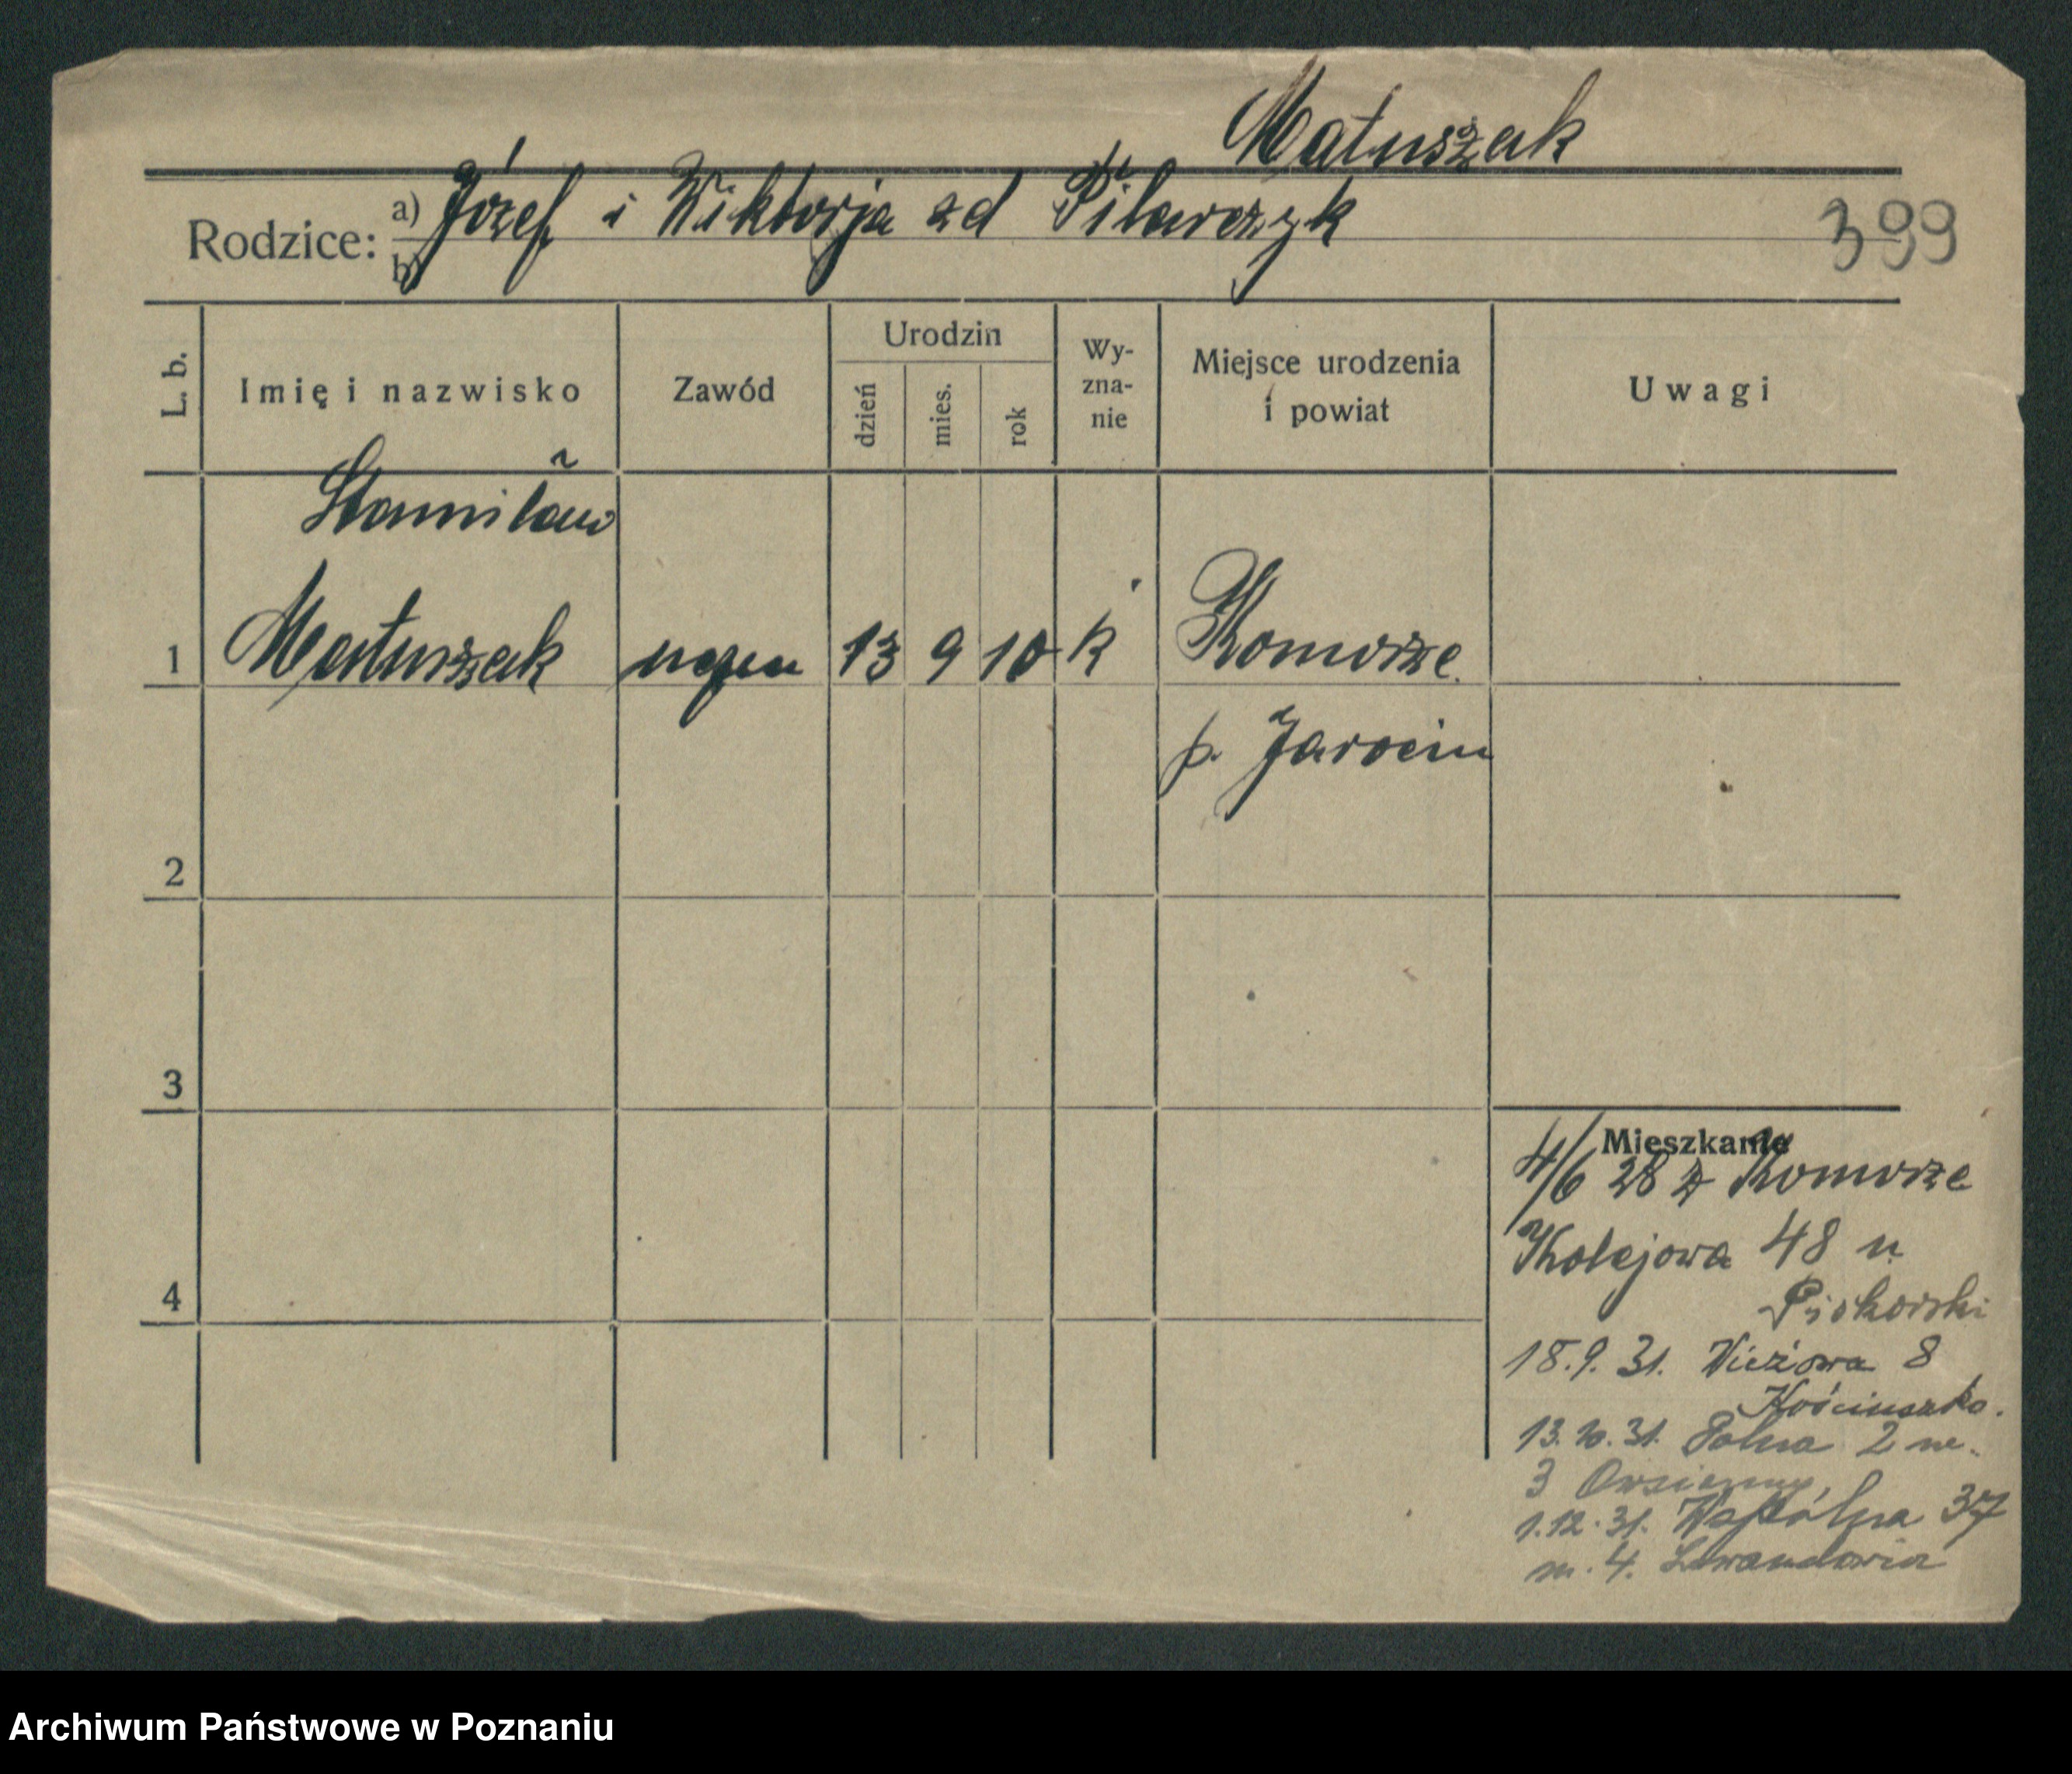 Matuszak
Rodzice: a) Józef i Wiktorja zd Pilarczyk
b)
399
L. b. Imię i nazwisko Zawód Urodzin dzień mies. rok Wy-zna-nie Miejsce urodzenia i powiat Uwagi
Stanisław
1 Matuszak uczeń 13 9 10 k Komorze
p. Jarocin
2
3
4
Mieszkanie
4/6 28 z Komorze
Kolejowa 48 u
Piekorski
18.9.31. Wieżowa 8
Kościuszko.
13.10.31. Polna 2 m.
3
1.12.31. Wspólna 37
m. 4.
Archiwum Państwowe w Poznaniu